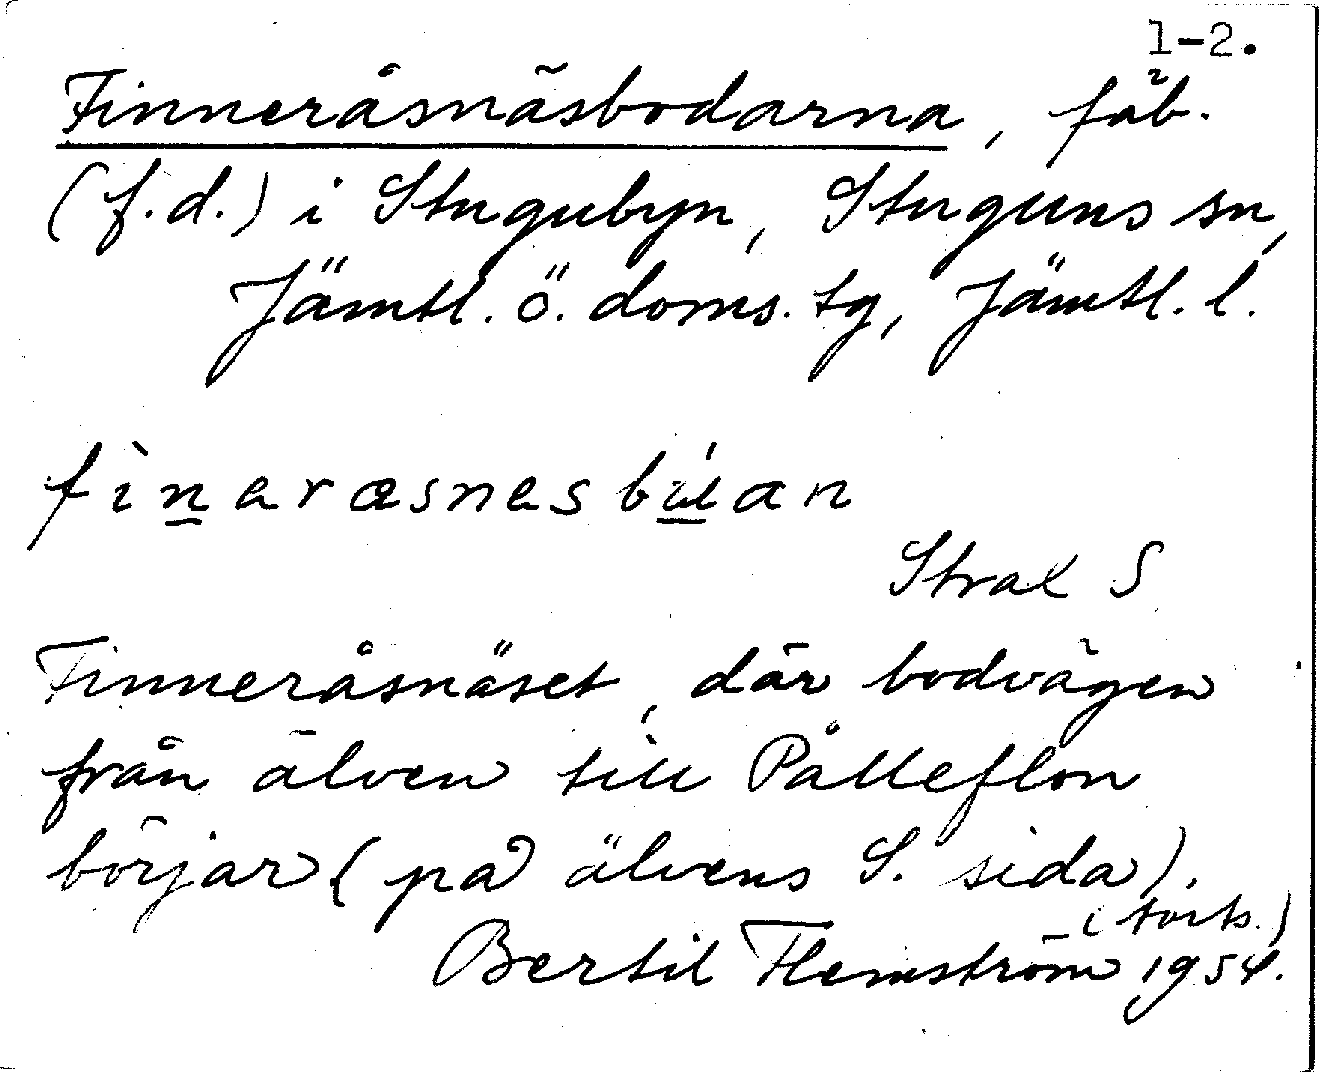 1-2.
Finneråsnäsbodarna, fäb.
(f.d.) i Stugubyn, Stuguns sn,
Jämtl. ö. doms. tg, Jämtl. l.
fìnaræsnesbúan
S
Finneråsnäset, där bodvägen
från älven till Pålleflon
börjar (på älvens S. sida).
(forts.)
Bertil Flemström 1954.